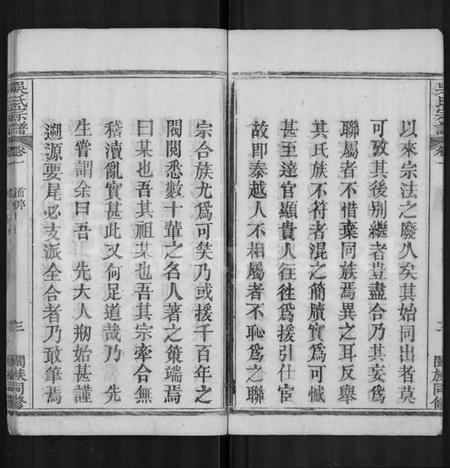 以來宗法之廢人矣其始同出者莫
可攷其後別繼者豈盡合乃其妄爲
聯屬者不惜棄同族焉異之耳反舉
其氏族不符者混之簡牘實爲可慽
甚至達官顯貴人徃徃爲援引仕宦
故即泰越人不相屬者不恥爲之聯
吳氏宗譜
卷一
三
闔族同修
宗合族尤爲可笑乃或援千百年之
閥閱悉數十葉之名人著之策端焉
曰某也吾其祖某也吾其宗牽合無
稽瀆亂實甚此又何足道哉乃 先
生嘗謂余曰吾 先大人刱始甚謹
遡源要尾必支派全合者乃敢筆焉
吳氏宗譜
卷一
三
闔族同修